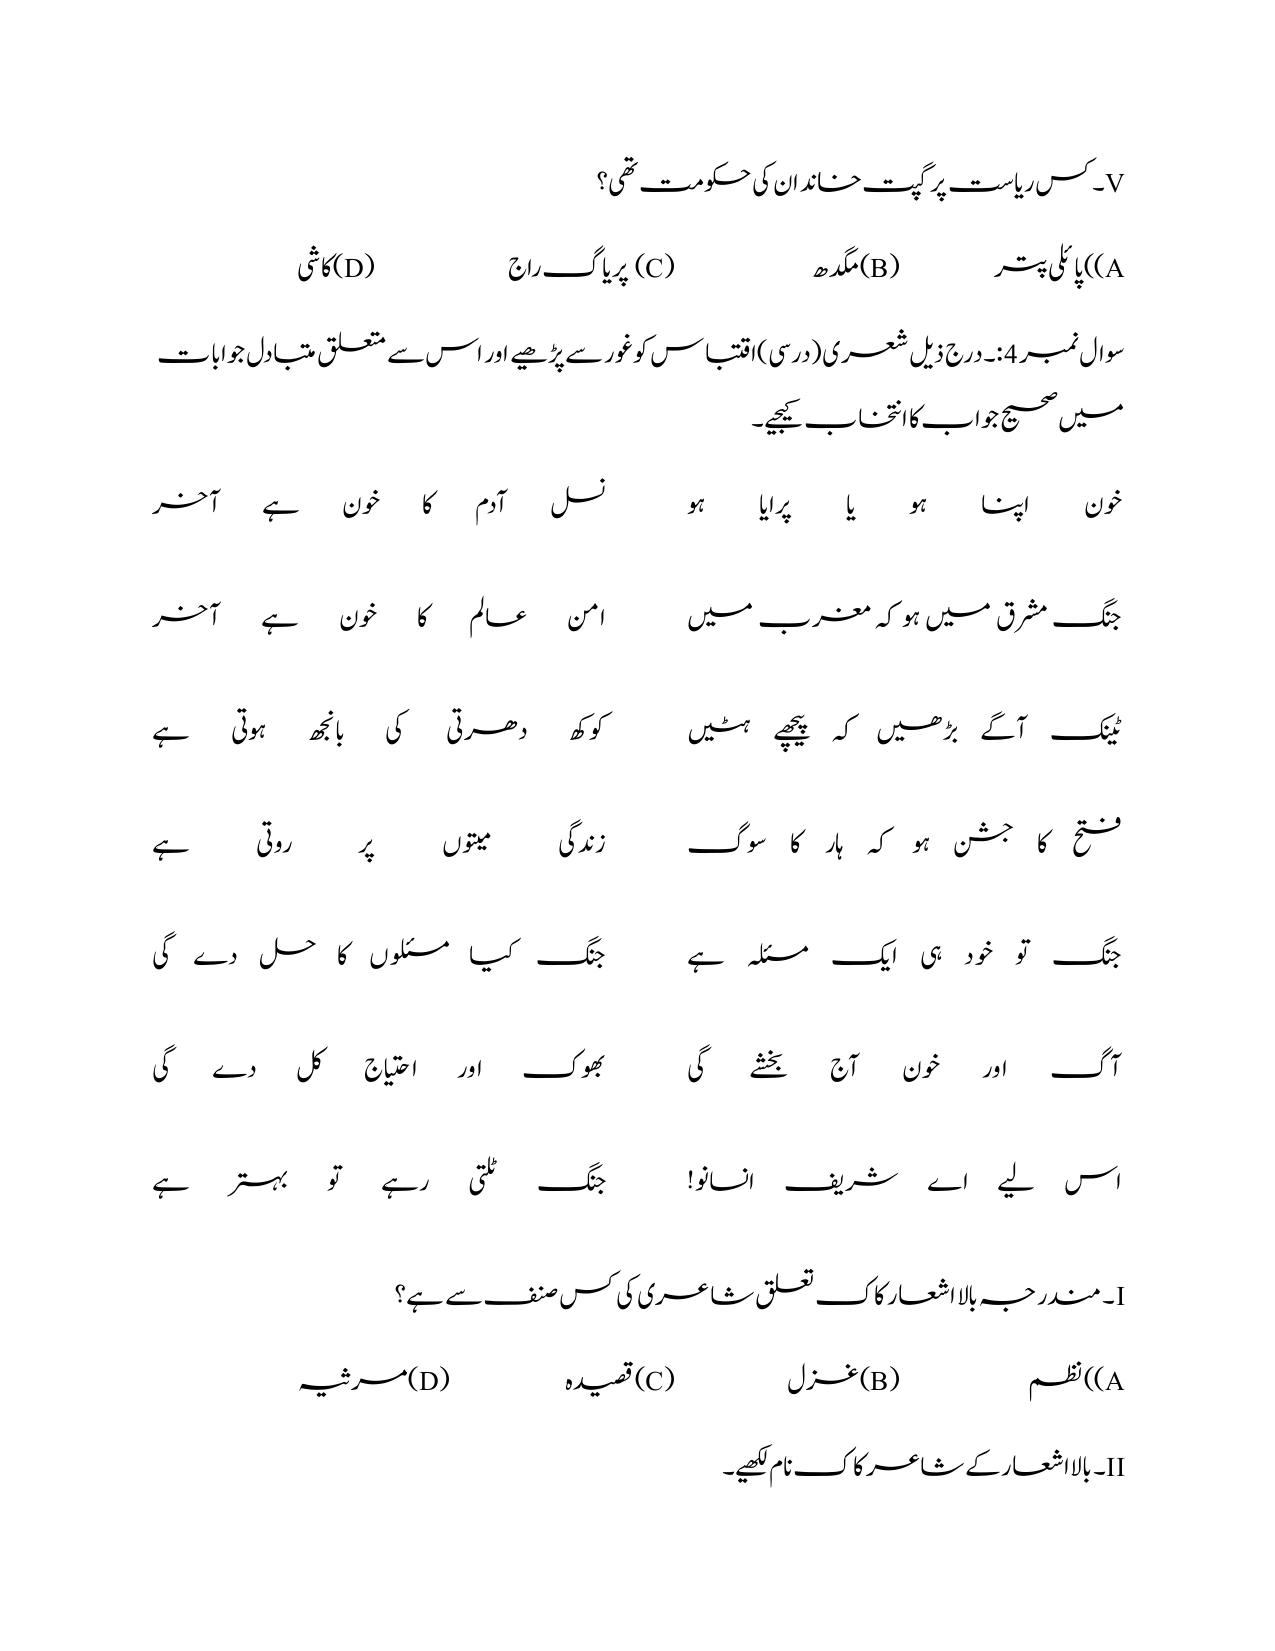 V۔ کس ریاست پر گپت خاندان کی حکومت تھی؟
A))پائلی پتر (B)مگدھ (C) پریاگ راج (D)کاشی
سوال نمبر 4:۔ درج ذیل شعری (درسی) اقتباس کو غور سے پڑھیے اور اس سے متعلق متبادل جوابات
میں صحیح جواب کا انتخاب کیجیے۔
خون اپنا ہو یا پرایا ہو نسل آدم کا خون ہے آخر
جنگ مشرق میں ہو کہ مغرب میں امن عالم کا خون ہے آخر
ٹینک آگے بڑھیں کہ پیچھے ہٹیں کوکھ دھرتی کی بانجھ ہوتی ہے
فتح کا جشن ہو کہ ہار کا سوگ زندگی میتوں پر روتی ہے
جنگ تو خود ہی ایک مسئلہ ہے جنگ کیا مسئلوں کا حل دے گی
آگ اور خون آج بخشے گی بھوک اور احتیاج کل دے گی
اس لیے اے شریف انسانو! جنگ ٹلتی رہے تو بہتر ہے
I۔ مندرجہ بالا اشعار کاک تعلق شاعری کی کس صنف سے ہے؟
A))نظم (B)غزل (C)قصیدہ (D)مرثیہ
II۔ بالا اشعار کے شاعر کاک نام لکھیے۔